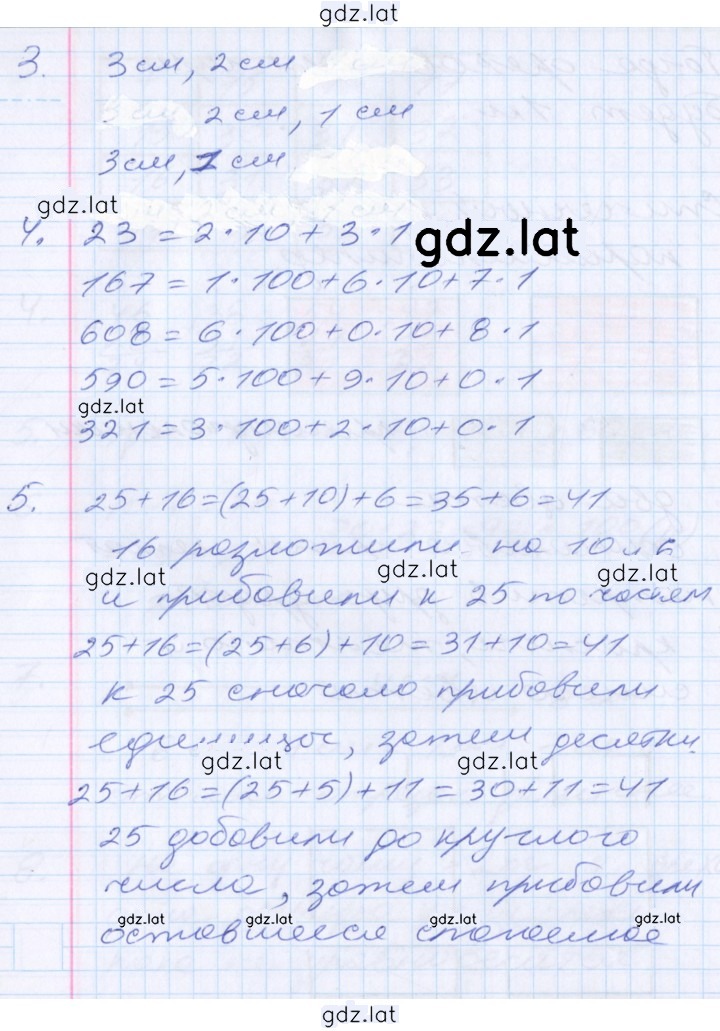 gdz.lat
3. 3 см, 2 см
3 см, 2 см, 1 см
3 см, 1 см
gdz.lat
4. 23 = 2·10 + 3·1
gdz.lat
167 = 1·100+6·10+7·1
608 = 6·100+0·10+8·1
590 = 5·100+9·10+0·1
gdz.lat
321 = 3·100+2·10+0·1
5. 25+16=(25+10)+6=35+6=41
16 разложили на 10 и 6
gdz.lat gdz.lat gdz.lat
и прибавили к 25 по частям
25+16=(25+6)+10=31+10=41
к 25 сначала прибавили
единицы, затем десятки.
gdz.lat gdz.lat
25+16=(25+5)+11=30+11=41
25 добавили до круглого
числа, затем прибавили
gdz.lat gdz.lat gdz.lat gdz.lat
оставшееся слагаемое
gdz.lat